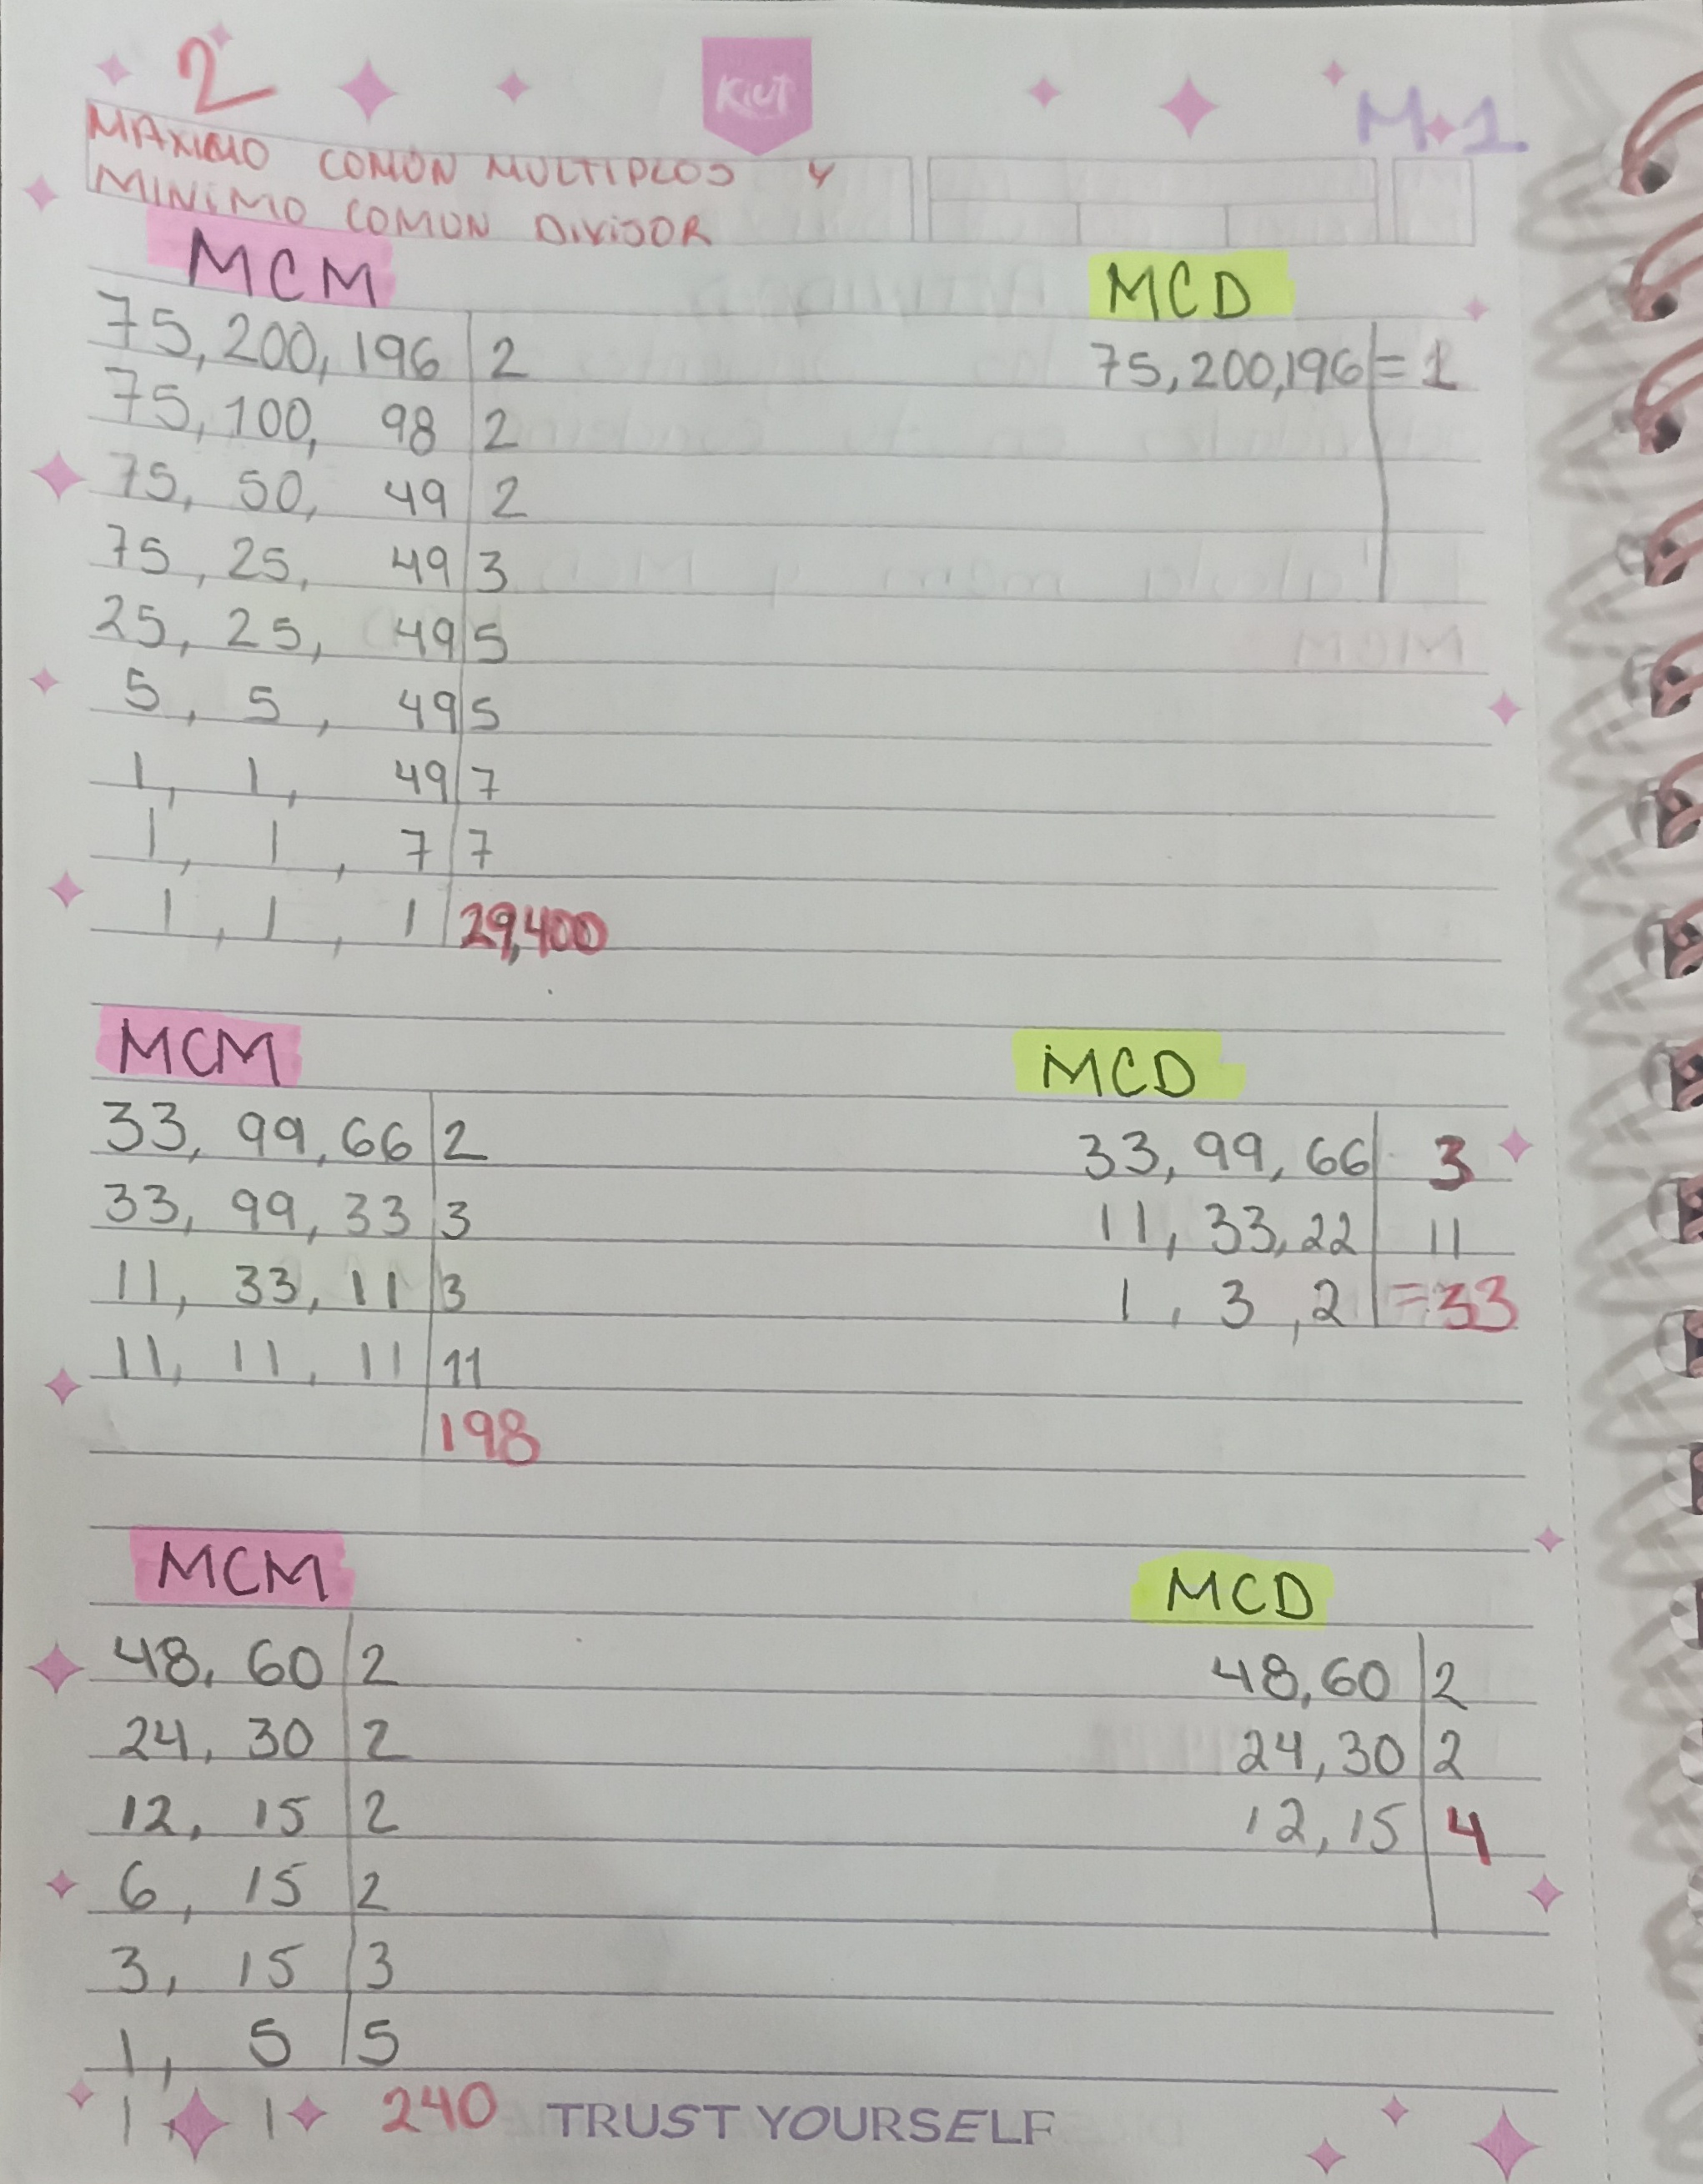 2
Kiut
M.1
MAXIMO COMÚN MULTIPLOS Y
MINIMO COMUN DIVISOR
MCM
75, 200, 196 | 2
75, 100, 98 | 2
75, 50, 49 | 2
75, 25, 49 | 3
25, 25, 49 | 5
5, 5, 49 | 5
1, 1, 49 | 7
1, 1, 7 | 7
1, 1, 1 | 29,400
MCD
75,200,196 | = 1
MCM
33, 99, 66 | 2
33, 99, 33 | 3
11, 33, 11 | 3
11, 11, 11 | 11
198
MCD
33, 99, 66 | 3
11, 33, 22 | 11
1, 3, 2 | = 33
MCM
48, 60 | 2
24, 30 | 2
12, 15 | 2
6, 15 | 2
3, 15 | 3
1, 5 | 5
1, 1 240
MCD
48,60 | 2
24,30 | 2
12,15 | 4
TRUST YOURSELF